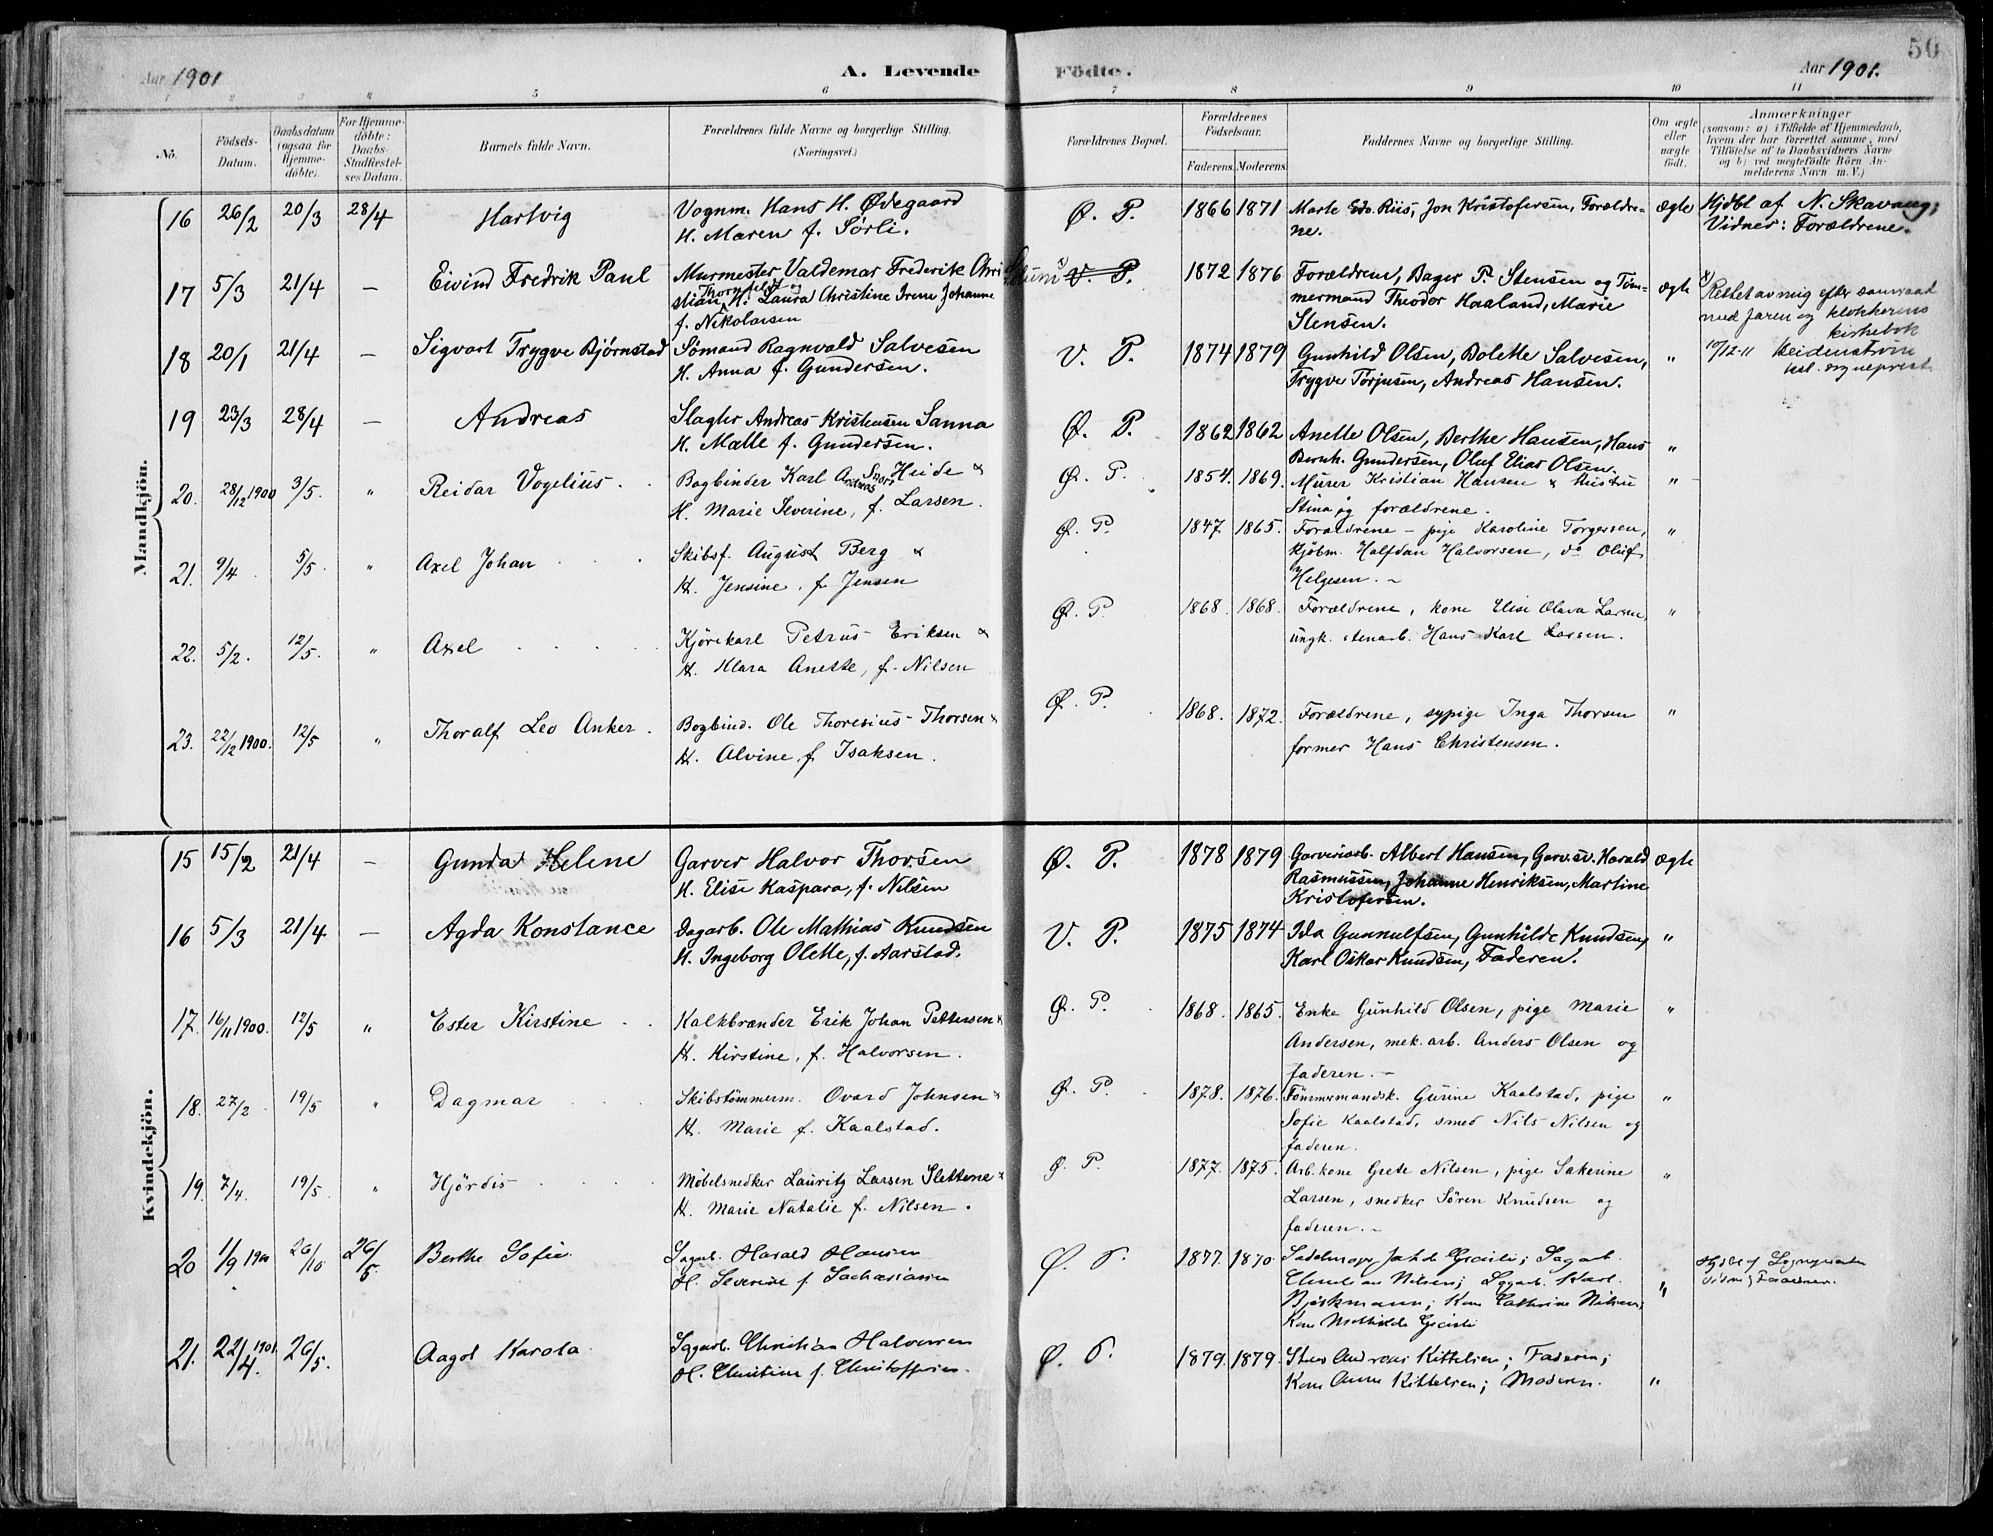 50
Aar 1901 A. Levende Födte. Aar 1901.
1 2 3 4 5 6 7 8 9 10 11
No.
Födsels-Datum.
Daabsdatum (ogsaa for Hjemmedöbte).
For Hjemmedöbte: Daabs-Stadfæstelses Datum.
Barnets fulde Navn.
Forældrenes fulde Navne og borgerlige Stilling. (Næringsvei.)
Forældrenes Bopæl.
Forældrenes Födselsaar. Faderens. Moderens.
Faddernes Navne og borgerlige Stilling.
Om ægte eller uægte födt.
Anmærkninger
(saasom: a) i Tilfælde af Hjemmedaab,
hvem der har forrettet samme, med
Tilföielse af to Daabsvidners Navne
og b) ved uægtefödte Börn An-
melderens Navn m. V.)
Mandkjön.
16 26/2 20/3 28/4 Hartvig Vognm. Hans H. Ødegaard Ø. P. 1866 1871 Marte Edv. Riis, Jon Kristofersen, Forældre- ægte Hjdbt af N. Skavang;
H. Maren f. Sørli. ne. Vidner: Forældrene.
17 5/3 21/4 — Eivind Fredrik Paul Murmester Valdemar Frederik Chri Solum x) V. P. 1872 1876 Forældrene, Bager P. Stensen og Töm- ægte x)
stian Thornfeldt og H. Laura Christine Irene Johanne mermand Theodor Haaland, Marie Rettet av mig efter samraad
f. Nikolaisen Stensen. med faren og klokkerens
kirkebok
18 20/1 21/4 — Sigvart Trygve Bjørnstad Sömand Ragnvald Salvesen V. P. 1874 1879 Gunhild Olsen, Bolette Salvesen, " 19/12-11 Heidenstrøm
H. Anna f. Gundersen. Trygve Torjusen, Andreas Hansen. kst. sogneprest.
19 23/3 28/4 — Andreas Slagter Andreas Kristensen Sanna Ø. P. 1862 1862 Anette Olsen, Berthe Hansen, Hans "
H. Malle f. Gundersen. Bernh. Gundersen, Oluf Elias Olsen.
20. 28/12 1900 3/5. " Reidar Vogelius. Bogbinder Karl Andreas Heide & Ø. P. 1854. 1869. Murer Kristian Hansen & hustru "
H. Marie Severine, f. Larsen. Stina og forældrene.
21. 9/4 5/5. " Axel Johan Skibsf. August Berg & Ø. P. 1847 1865. Forældrene – pige Karoline Torgersen, "
H. Jensine, f. Jensen kjöbm. Halfdan Halvorsen, do Oluf
Helgesen. –
22. 5/2. 12/5. " Axel Kjörekarl Petrus Eriksen & Ø. P. 1868. 1868. Forældrene, kone Elise Olava Larsen "
H. Klara Anette, f. Nilsen ungk. stenarb. Hans Karl Larsen.
23. 22/12 1900. 12/5 " Thoralf Leo Anker. Bogbind. Ole Thoresius Thorsen & Ø. P. 1868. 1872. Forældrene, sypige Inga Thorsen "
H. Alvine, f. Isaksen. former Hans Christensen.
Kvindekjön.
15 15/2 21/4 — Gunda Helene Garver Halvor Thorsen Ø. P. 1878 1879 Garveriarb. Albert Hansen, Garvsv. Harald ægte
H. Elise Kaspara, f. Nilsen Rasmussen, Johanne Henriksen, Martine
Kristofersen.
16 5/3 21/4 — Agda Konstance Dagarb. Ole Mathias Knudsen V. P. 1875 1874 Ida Gunnulfsen, Gunhilde Knudsen, "
H. Ingeborg Olette, f. Aarstad. Karl Oskar Knudsen, Faderen.
17. 16/11 1900. 12/5 " Ester Kirstine Kalkbrænder Erik Johan Pettersen & Ø. P. 1868. 1865. Enke Gunhild Olsen, pige Marie "
H. Kirstine, f. Halvorsen. Andersen, mek. arb. Anders Olsen og
faderen. –
18. 27/2 19/5 " Dagmar Skibstömmerm. Ovard Johnsen & Ø. P. 1878. 1876. Tömmermandsk. Gurine Kaalstad, pige "
H. Marie f. Kaalstad. Sofie Kaalstad, smed Nils Nilsen og
faderen.
19. 7/4. 19/5. " Hjördis Möbelsnedker Lauritz Larsen Slettene & Ø. P. 1877. 1875. Arb.kone Grete Nilsen, pige Sakerine "
H. Marie Natalie f. Nilsen. Larsen, snedker Sören Knudsen og
faderen. –
20 1/9 1900 26/10 26/5. Berthe Sofie Harald Hansen Ø. P. 1877. 1870. "
H. Severine f. Sachariasen Christian Nilsen; Karl
Bjørkmann; Kone Cathrine Nilsen;
Kone Mathilde
21. 22/4 1901 26/5. Aagot Karola. Christian Halvorsen Ø. P. 1879. 1879. Andreas Kittelsen; Faderen;
H. Christine f. Christoffersen. Kone Anne Kittelsen; Moderen. "